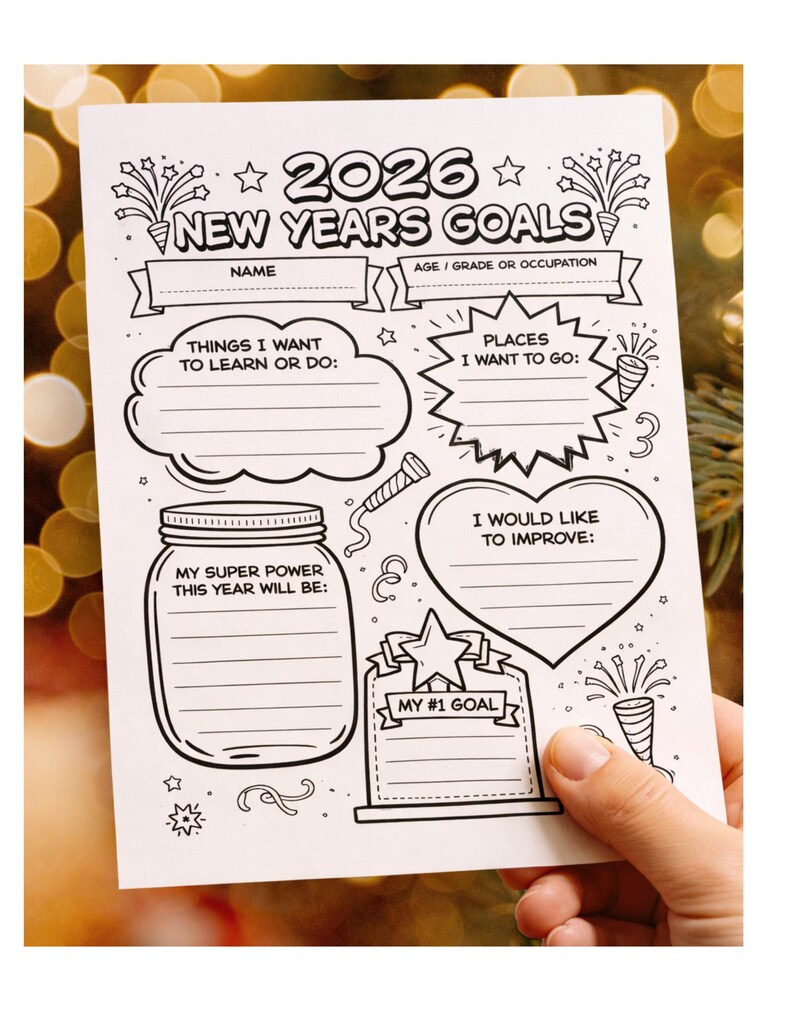 2026
NEW YEARS GOALS
NAME
AGE / GRADE OR OCCUPATION
THINGS I WANT
TO LEARN OR DO:
PLACES
I WANT TO GO:
MY SUPER POWER
THIS YEAR WILL BE:
I WOULD LIKE
TO IMPROVE:
MY #1 GOAL